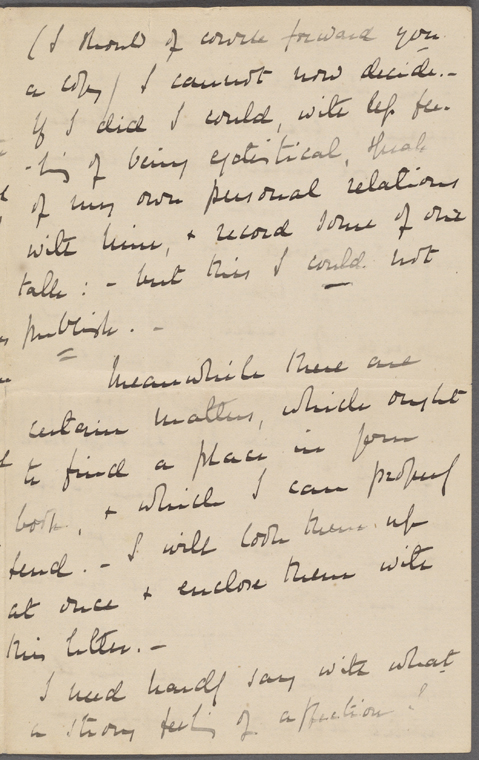 (I should of course forward you
a copy) I cannot now decide. -
If I did I could, with less fee-
-ling of being egotistical, speak
of my own personal relations
with him, + record some of our
talk : - but this I could not
publish. -
Meanwhile there are
certain matters, which ought
to find a place in your
book, + which I can properly
send. - I will look them up
at once + enclose them with
this letter. -
I need hardly say with what
a strong feeling of affection I